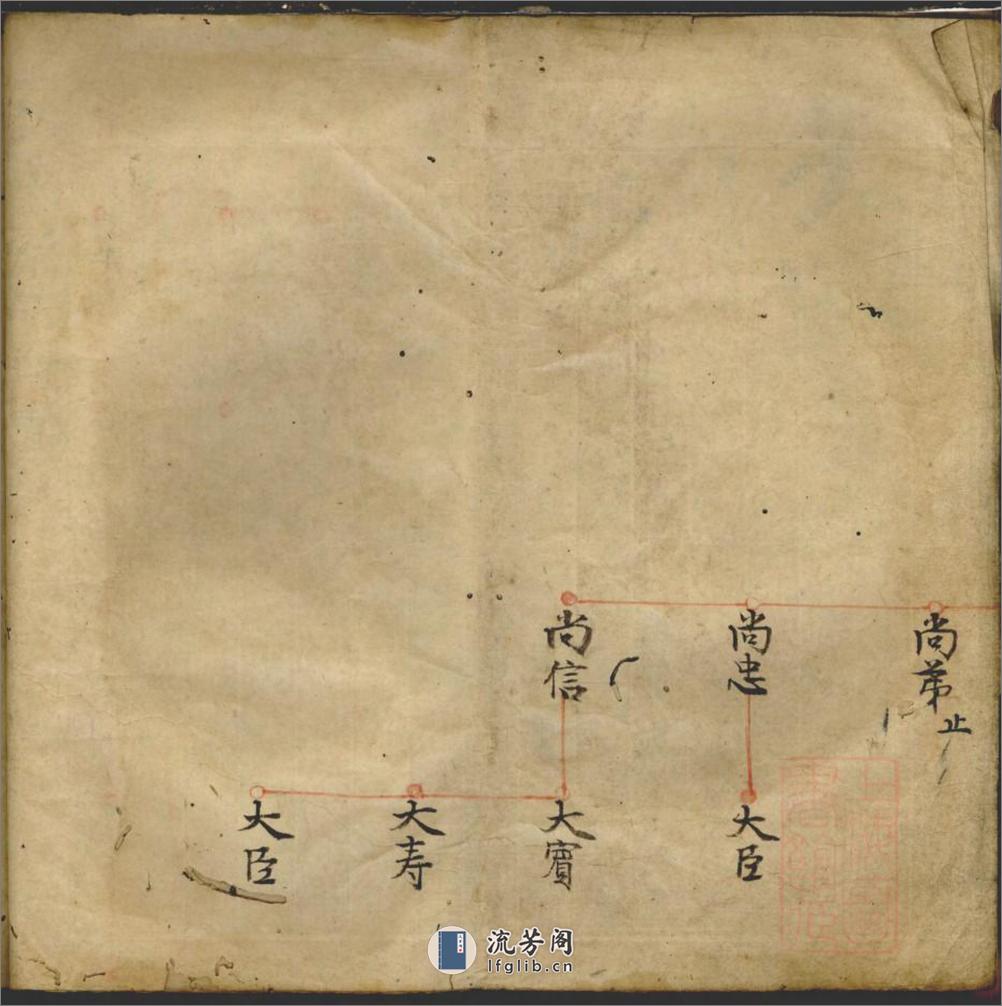 尚弟
止
尚忠
尚信
大臣
大賓
大寿
大臣
流芳阁
lfglib.cn